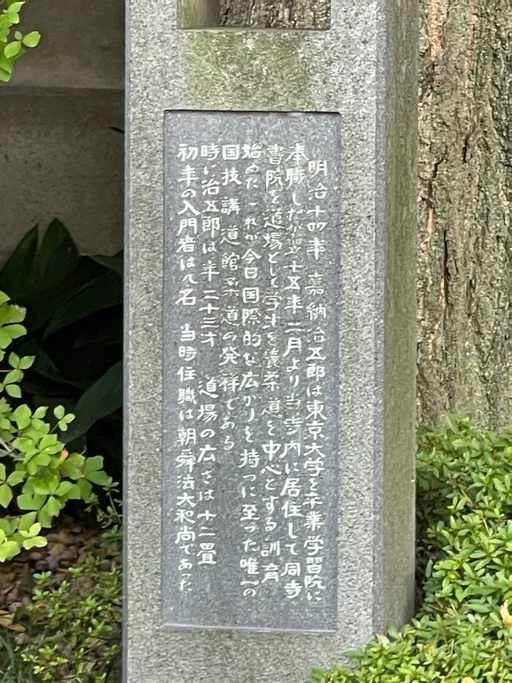 明治十四年 嘉納治五郎は東京大学を卒業学習院に
奉職したが翌十五年二月より当寺内に居住して同寺
書院を道場として学生を養柔道を中心とする訓育
始めた これが今日国際的な広がりを持つに至った唯一の
国技 講道館柔道の発祥である
時に治五郎は年二十三才 道場の広さは十二畳
初年の入門者は九名 当時住職は朝舜法大和尚であった